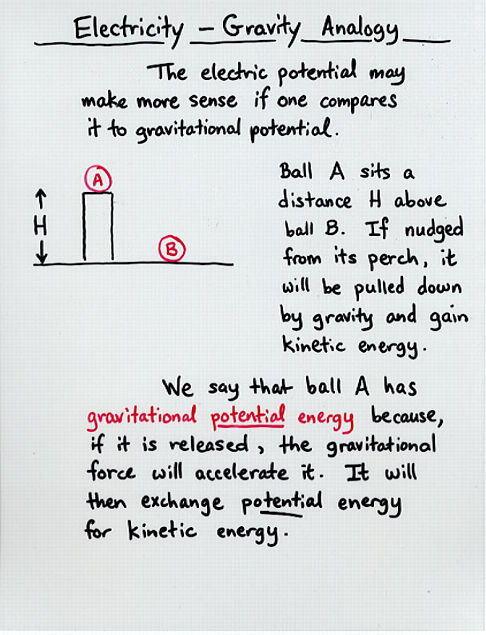 Electricity – Gravity Analogy
The electric potential may
make more sense if one compares
it to gravitational potential.
A
H
B
Ball A sits a
distance H above
ball B. If nudged
from its perch, it
will be pulled down
by gravity and gain
kinetic energy.
We say that ball A has
gravitational potential energy because,
if it is released, the gravitational
force will accelerate it. It will
then exchange potential energy
for kinetic energy.